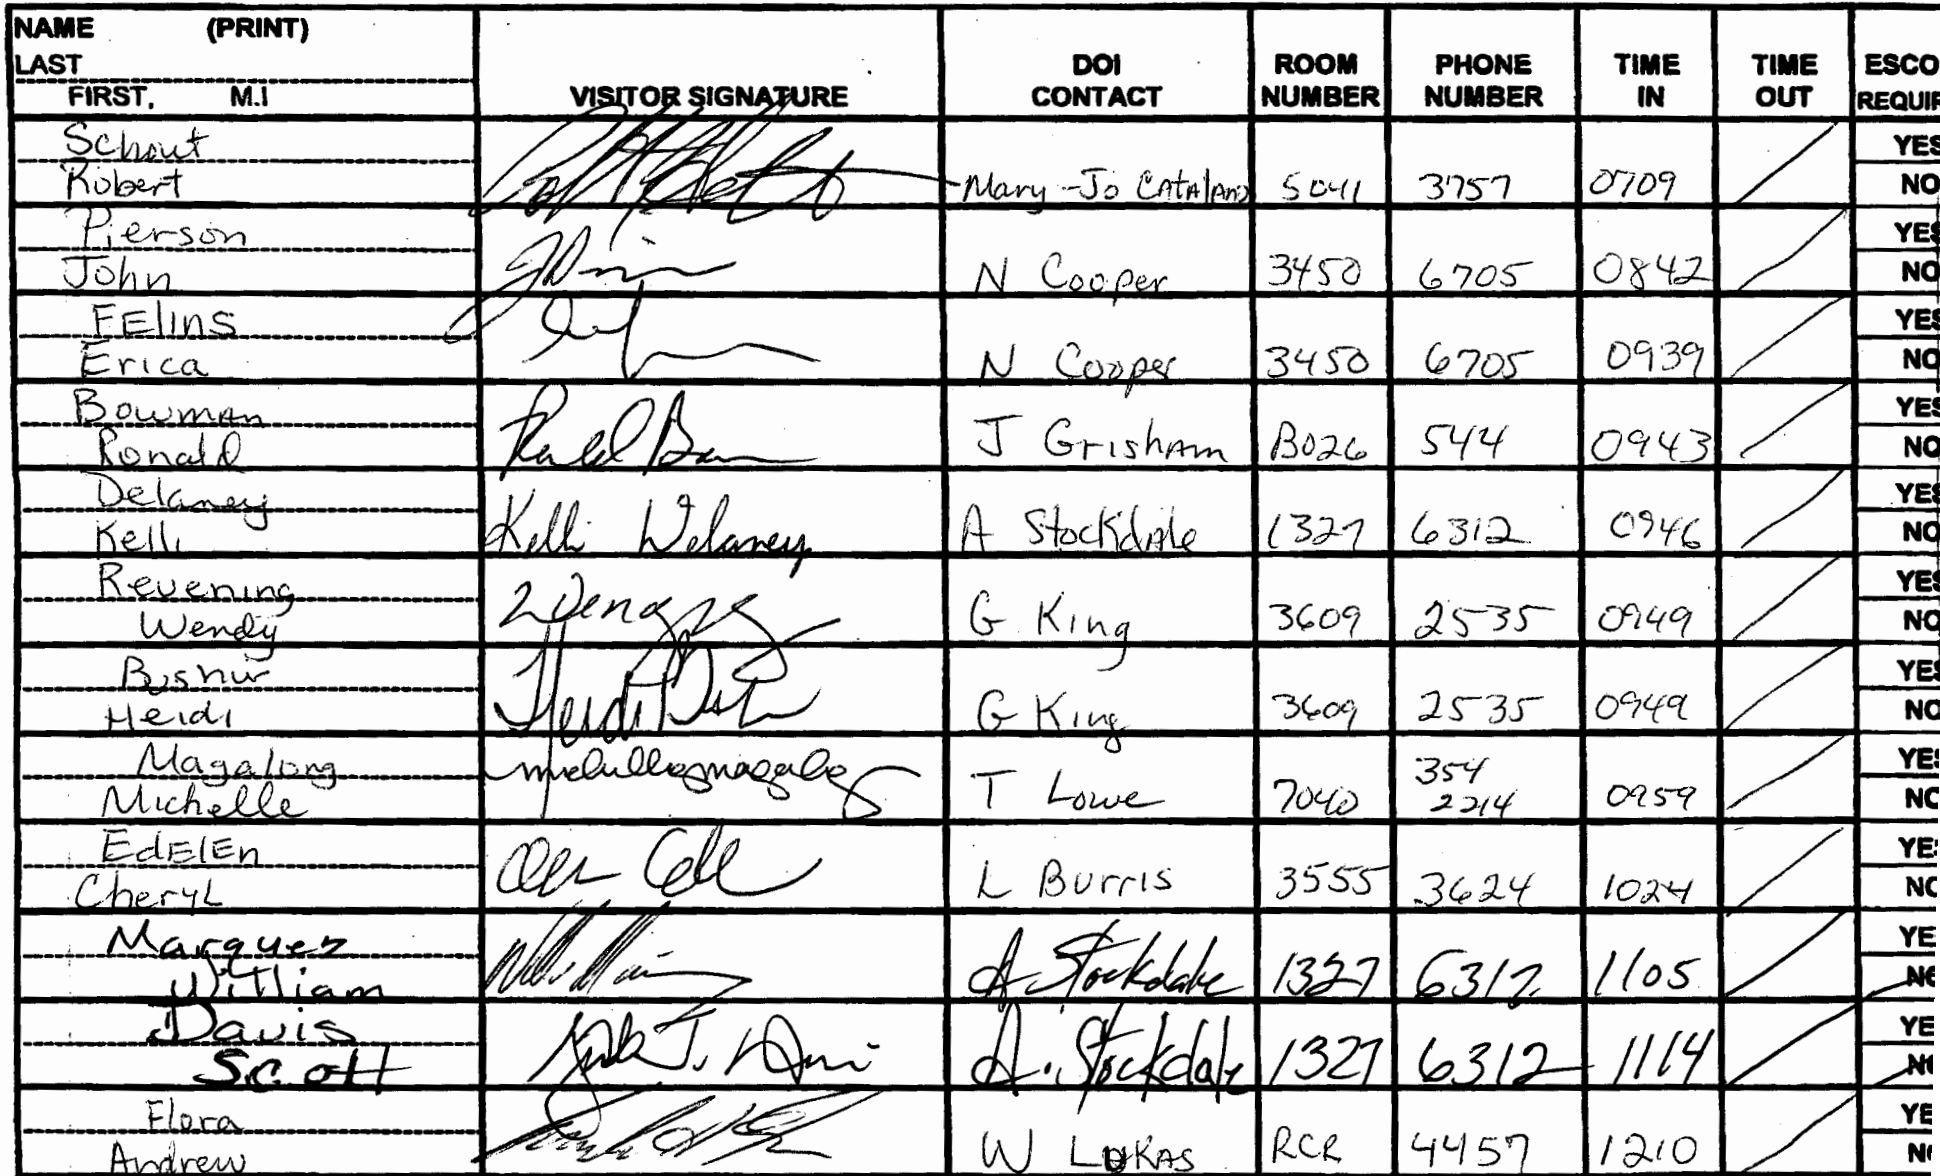 NAME (PRINT)
LAST
FIRST, M.I
VISITOR SIGNATURE
DOI CONTACT
ROOM NUMBER
PHONE NUMBER
TIME IN
TIME OUT
ESCO
REQUIR
Schout
Robert
Mary-Jo CAtAlAno 5041 3757 0709
YES
NO
Pierson
John
N Cooper 3450 6705 0842
YES
NO
FElins
Erica
N Cooper 3450 6705 0939
YES
NO
BowmAn
Ronald
Ronald
J GrishAm B026 544 0943
YES
NO
Delaney
Kelli
Kelli Delaney
A StockdAle 1327 6312 0946
YES
NO
Revening
Wendy
G King 3609 2535 0949
YES
NO
Heidi
Heidi
G King 3609 2535 0949
YES
NO
Magalong
Michelle
T Lowe 7040 354 2214 0959
YES
NO
EdElEn
CheryL
L Burris 3555 3624 1024
YES
NO
Marquez
William
A. Stockdale 1327 6312 1105
YE
NO
Davis
Scott
A. Stockdale 1327 6312 1114
YE
NO
Flora
Andrew
W LUKAS RCR 4457 1210
YE
NO